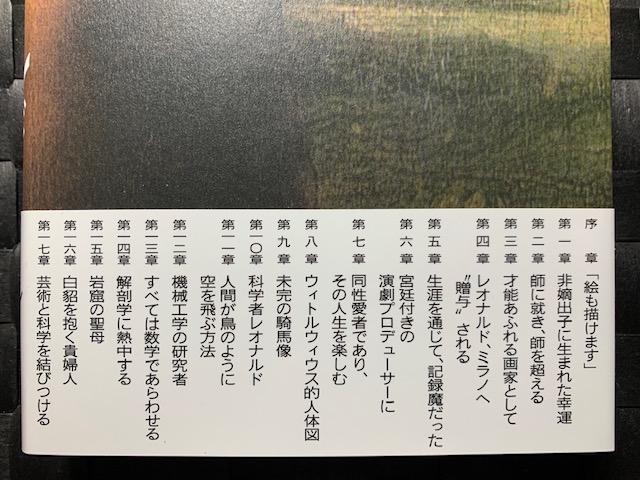 序　章　「絵も描けます」
第一章　非嫡出子に生まれた幸運
第二章　師に就き、師を超える
第三章　才能あふれる画家として
第四章　レオナルド、ミラノへ
〝贈与〟される
第五章　生涯を通じて、記録魔だった
第六章　宮廷付きの
演劇プロデューサーに
第七章　同性愛者であり、
その人生を楽しむ
第八章　ウィトルウィウス的人体図
第九章　未完の騎馬像
第一〇章　科学者レオナルド
第一一章　人間が鳥のように
空を飛ぶ方法
第一二章　機械工学の研究者
第一三章　すべては数学であらわせる
第一四章　解剖学に熱中する
第一五章　岩窟の聖母
第一六章　白貂を抱く貴婦人
第一七章　芸術と科学を結びつける